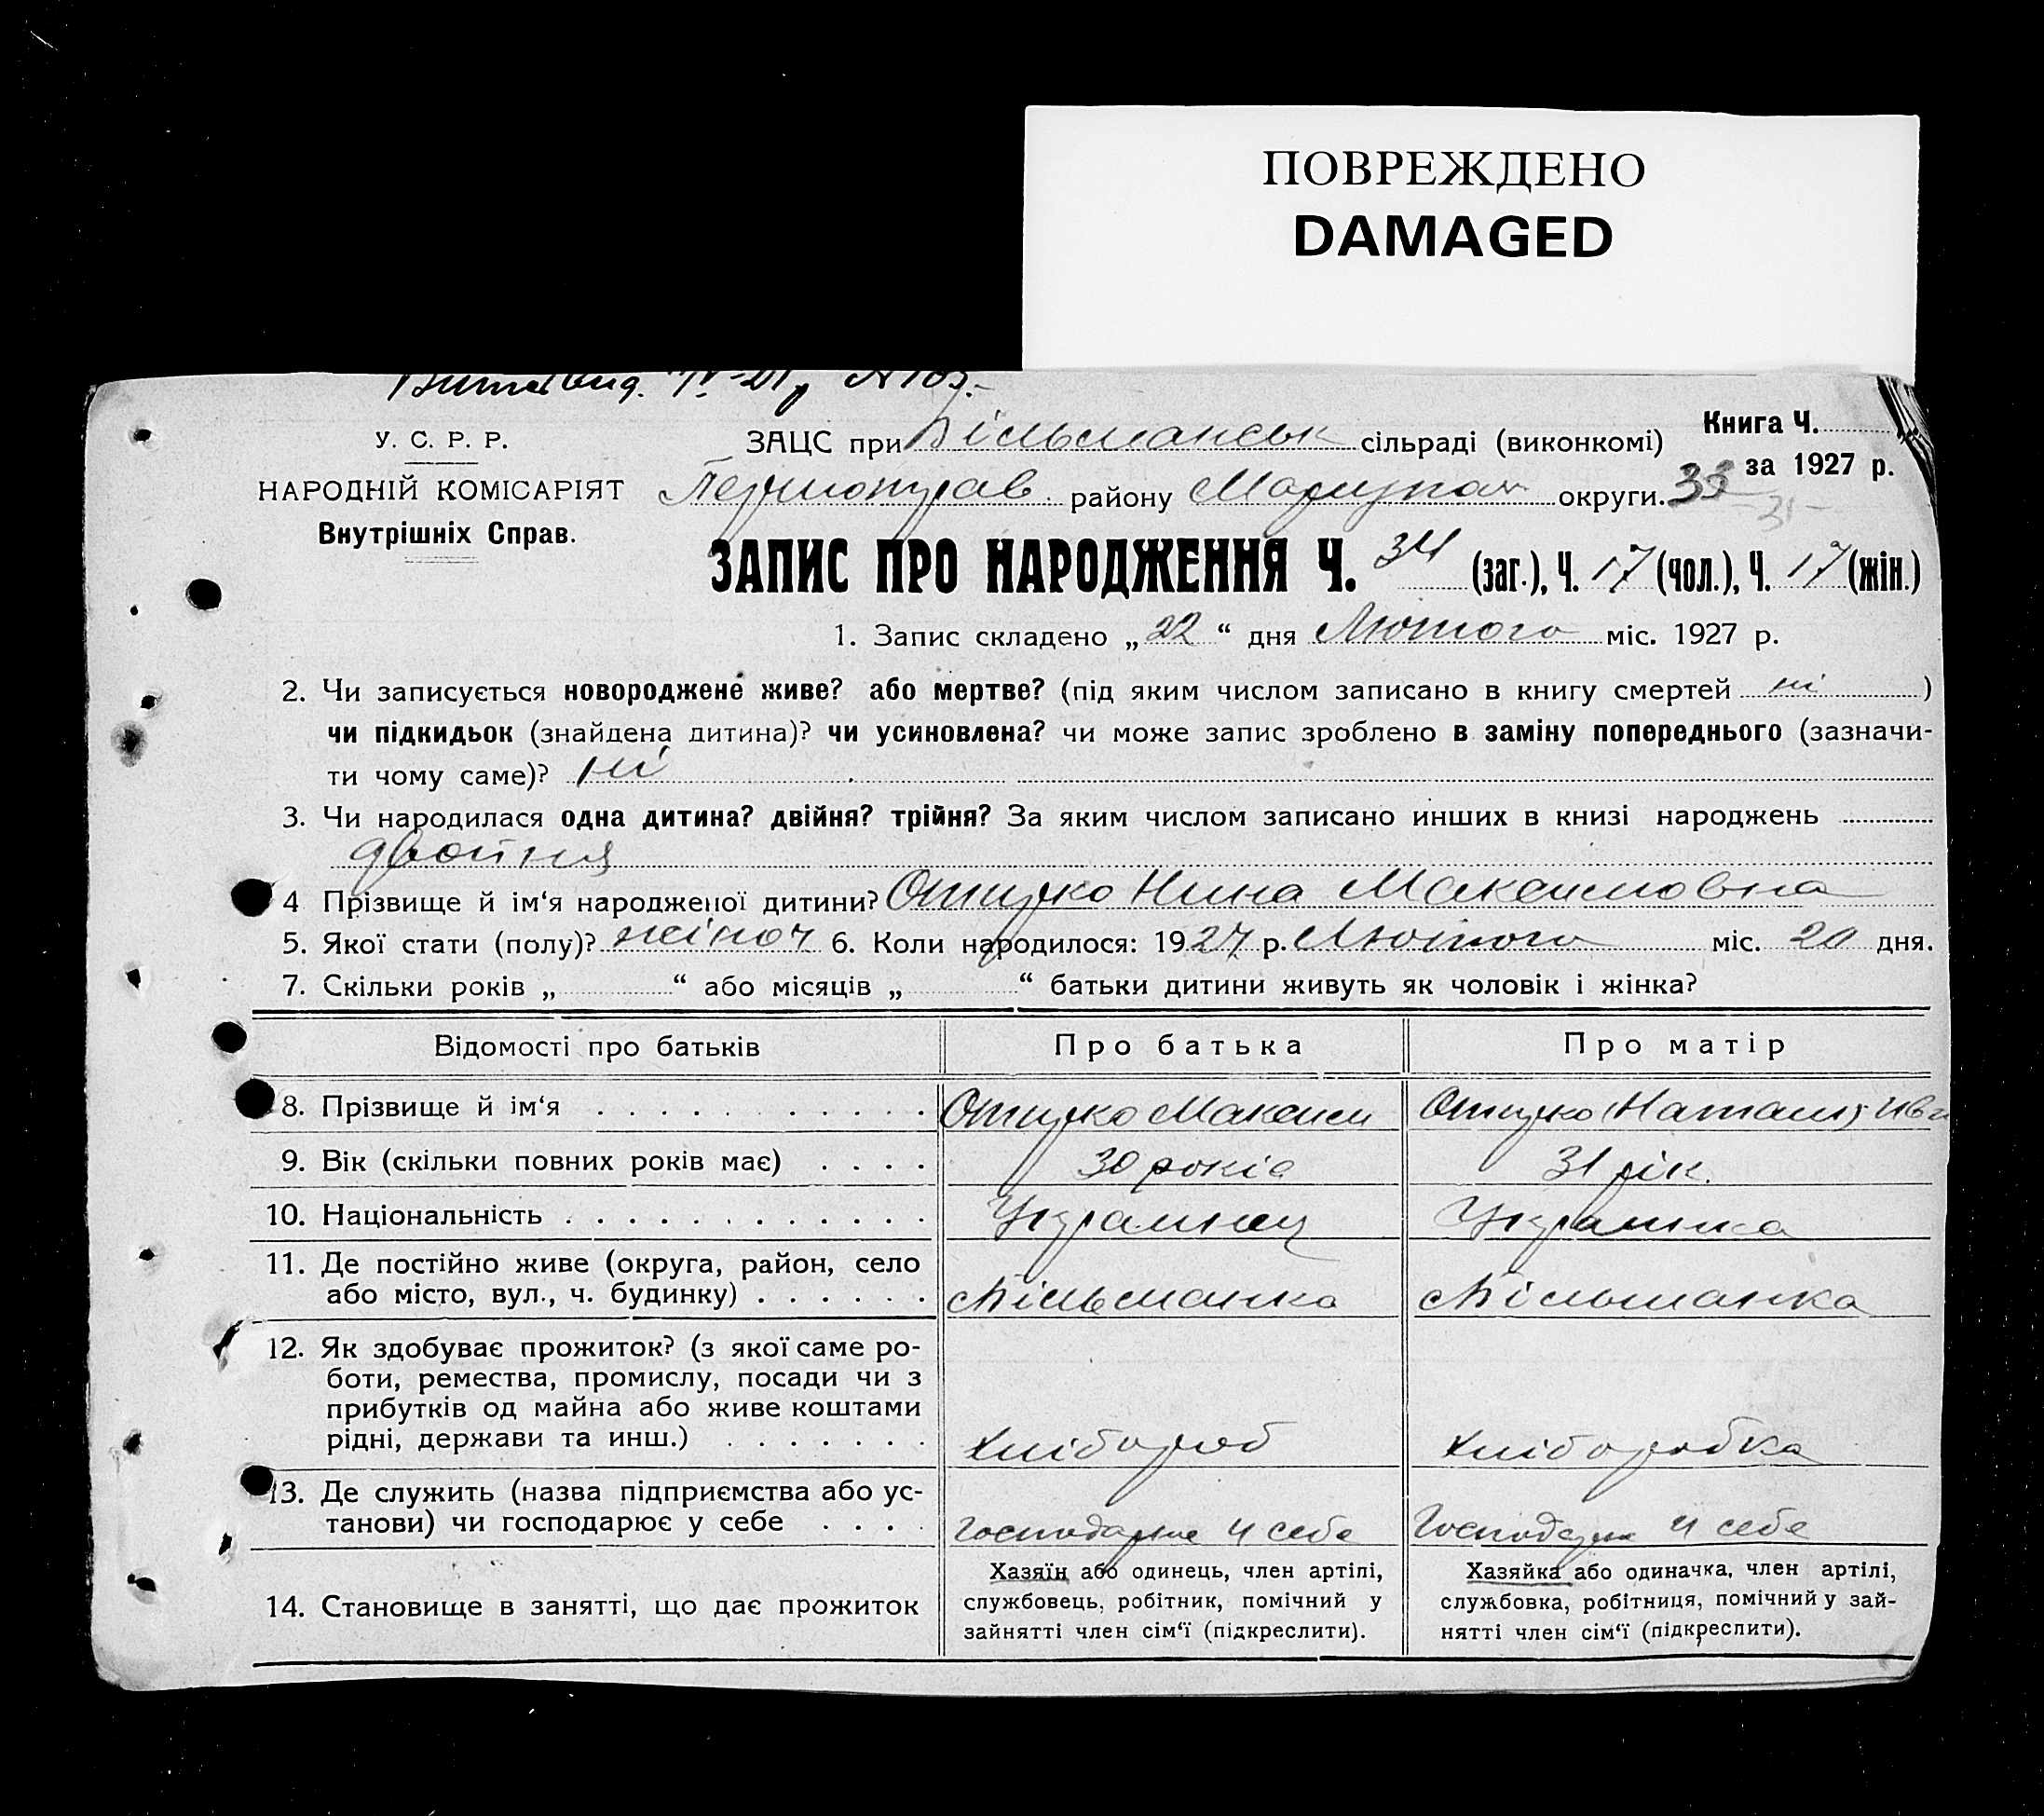 ПОВРЕЖДЕНО
DAMAGED
У. С. Р. Р.
НАРОДНІЙ КОМІСАРІЯТ
Внутрішніх Справ.
ЗАЦС при Більманськ сільраді (виконкомі)
Книга Ч.
за 1927 р.
району Мариупол округи. 33
ЗАПИС ПРО НАРОДЖЕННЯ Ч. 34 (заг.), Ч. 17 (чол.), Ч. 17 (жін.)
1. Запис складено „ 22 “ дня Лютого міс. 1927 р.
2. Чи записується новороджене живе? або мертве? (під яким числом записано в книгу смертей ні )
чи підкидьок (знайдена дитина)? чи усиновлена? чи може запис зроблено в заміну попереднього (зазначи-
ти чому саме)? ні
3. Чи народилася одна дитина? двійня? трійня? За яким числом записано инших в книзі народжень
двойня
4 Прізвище й ім‘я народженої дитини? Отцуко Нина Максимовна
5. Якої стати (полу)? жіноч 6. Коли народилося: 1927 р. Лютого міс. 20 дня.
7. Скільки років „ “ або місяців „ “ батьки дитини живуть як чоловік і жінка?
Відомості про батьків Про батька Про матір
8. Прізвище й ім‘я Отцуко Максим Отцуко Наталя
9. Вік (скільки повних років має) 30 років 31 рік.
10. Національність Украинец Украинка
11. Де постійно живе (округа, район, село
або місто, вул., ч. будинку) Більманка Більманка
12. Як здобуває прожиток? (з якої саме ро-
боти, ремества, промислу, посади чи з
прибутків од майна або живе коштами
рідні, держави та инш.) хлібороб хліборобка
13. Де служить (назва підприємства або ус-
танови) чи господарює у себе господарює у себе Господарює у себе
14. Становище в занятті, що дає прожиток
Хазяїн або одинець, член артілі,
службовець, робітник, помічний у
зайнятті член сім‘ї (підкреслити).
Хазяйка або одиначка, член артілі,
службовка, робітниця, помічний у зай-
нятті член сім‘ї (підкреслити).